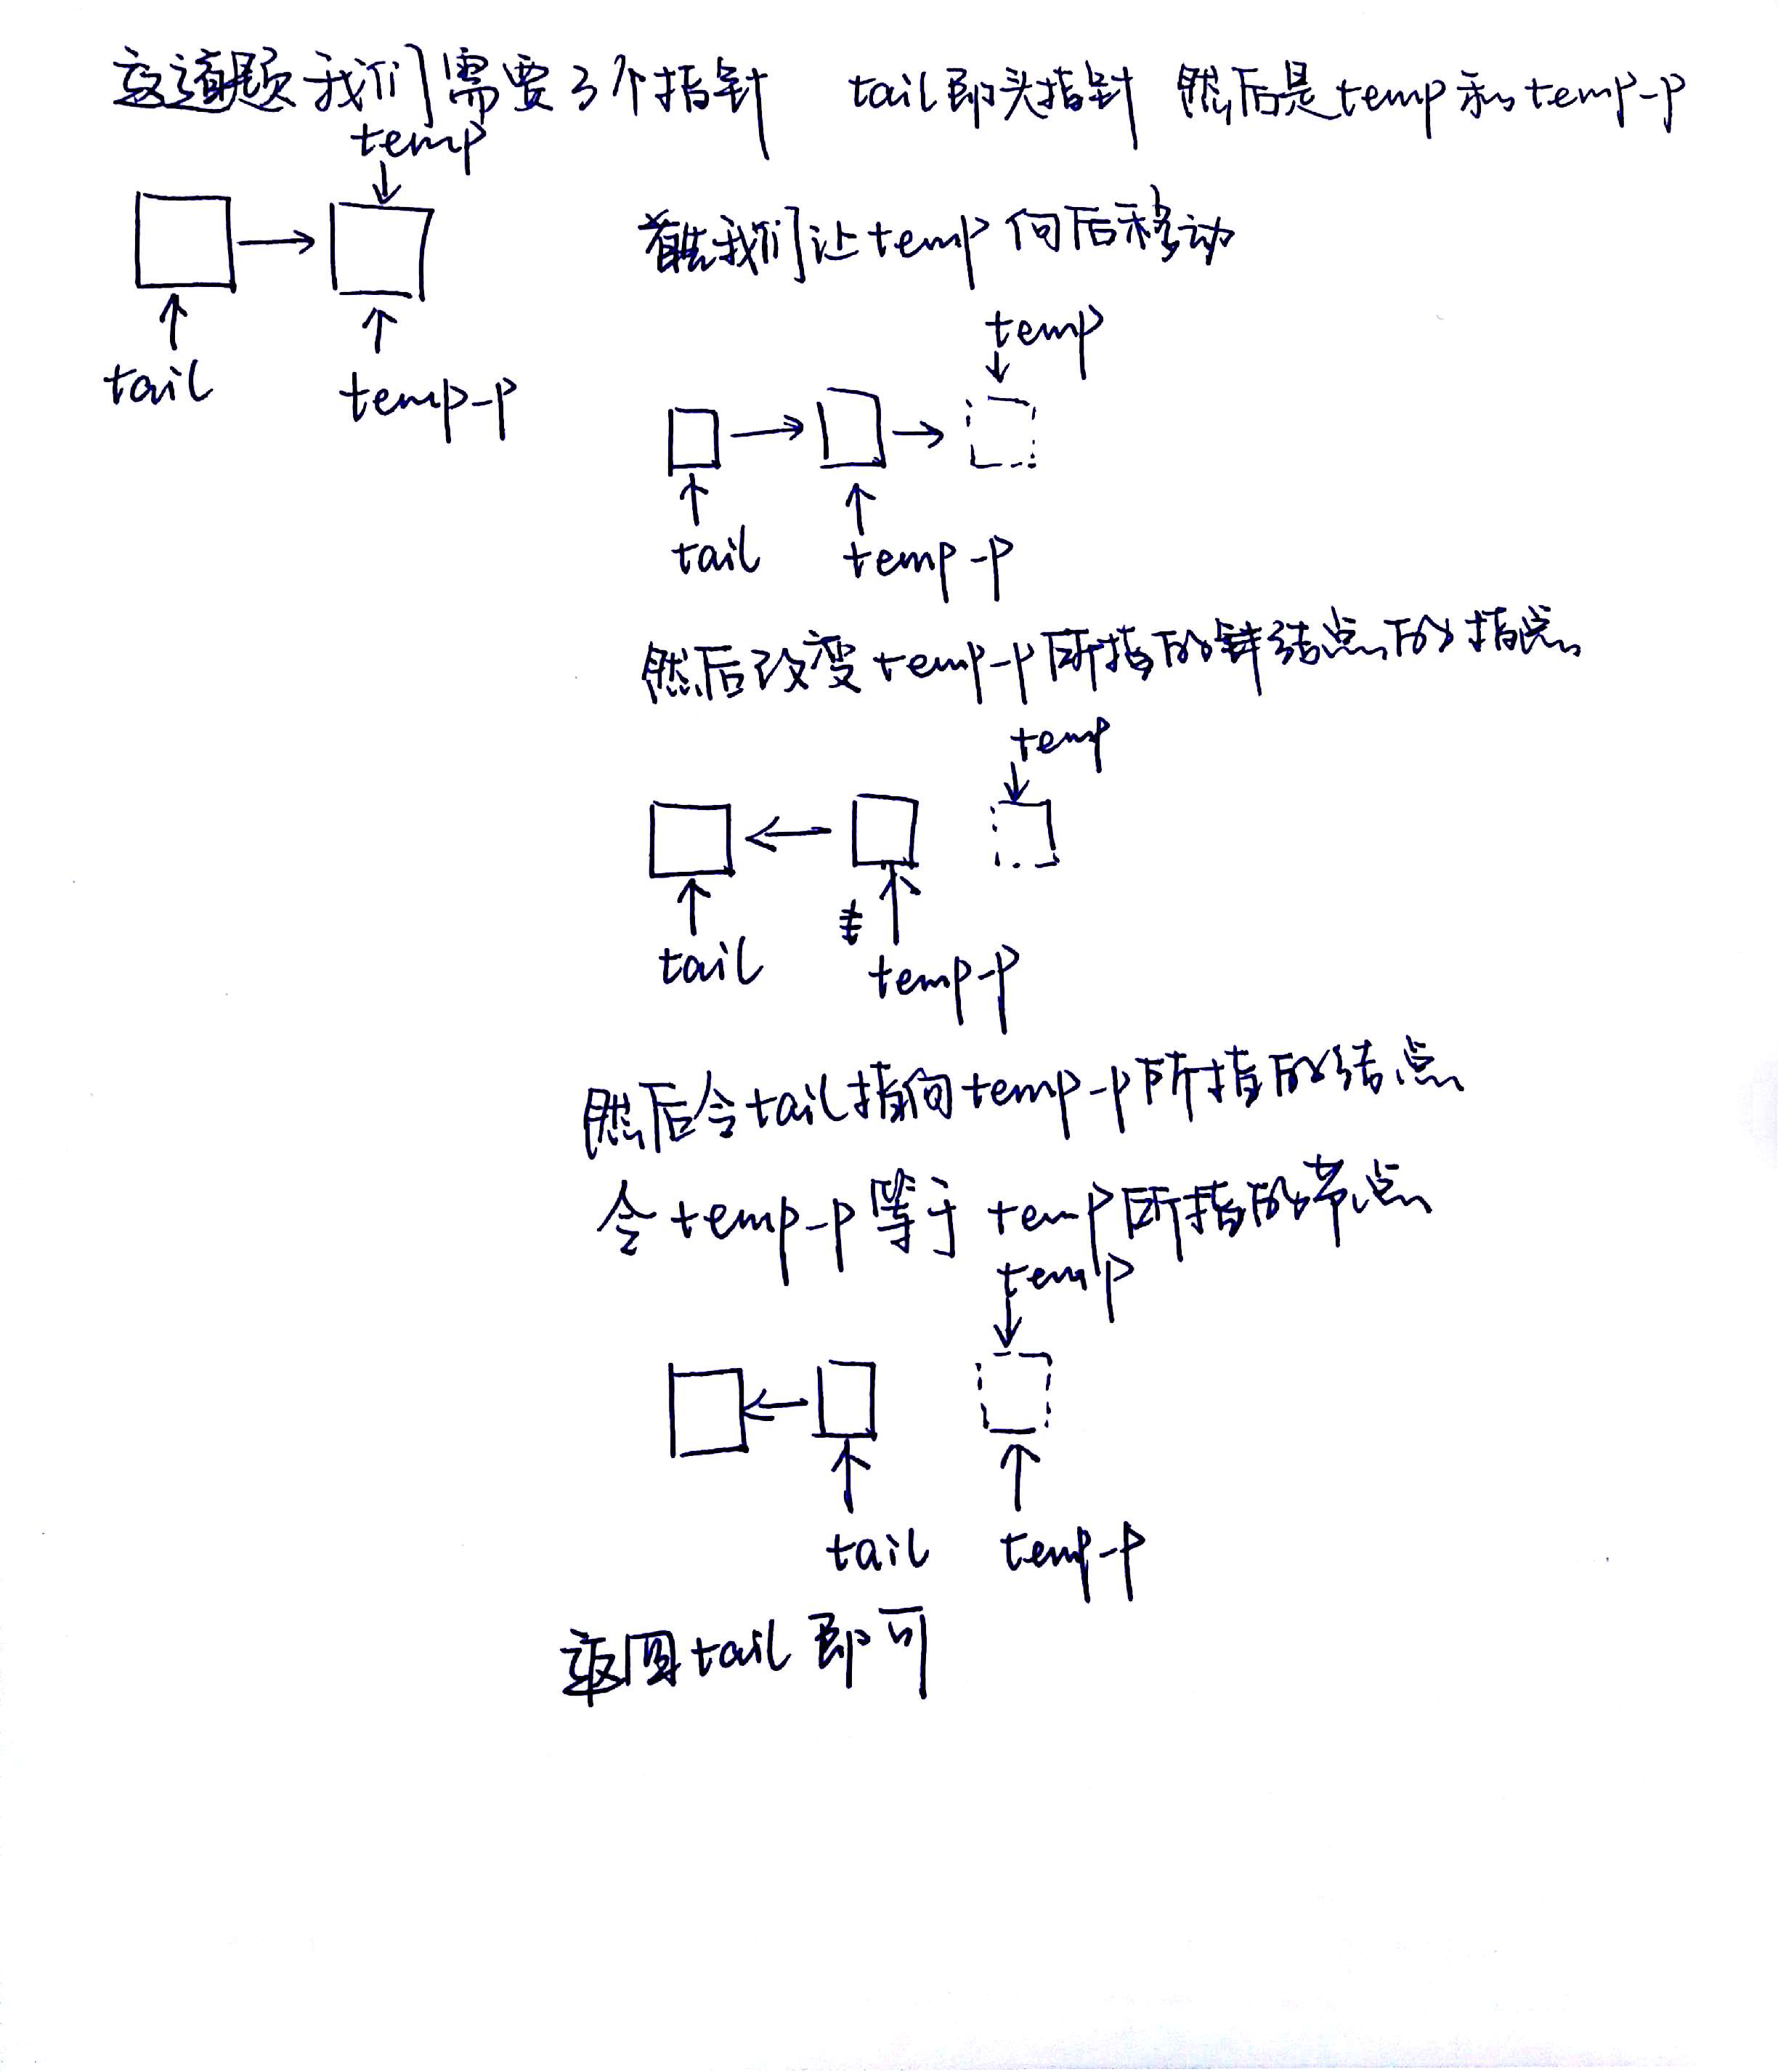 这道题我们需要3个指针 tail即头指针 然后是temp和temp-p
temp
tail
temp-p
首先我们让temp向后移动
temp
tail
temp-p
然后改变temp-p所指的结点的指向
temp
tail
temp-p
然后令tail指向temp-p所指的结点
令temp-p等于temp所指的节点
temp
tail
temp-p
返回tail即可